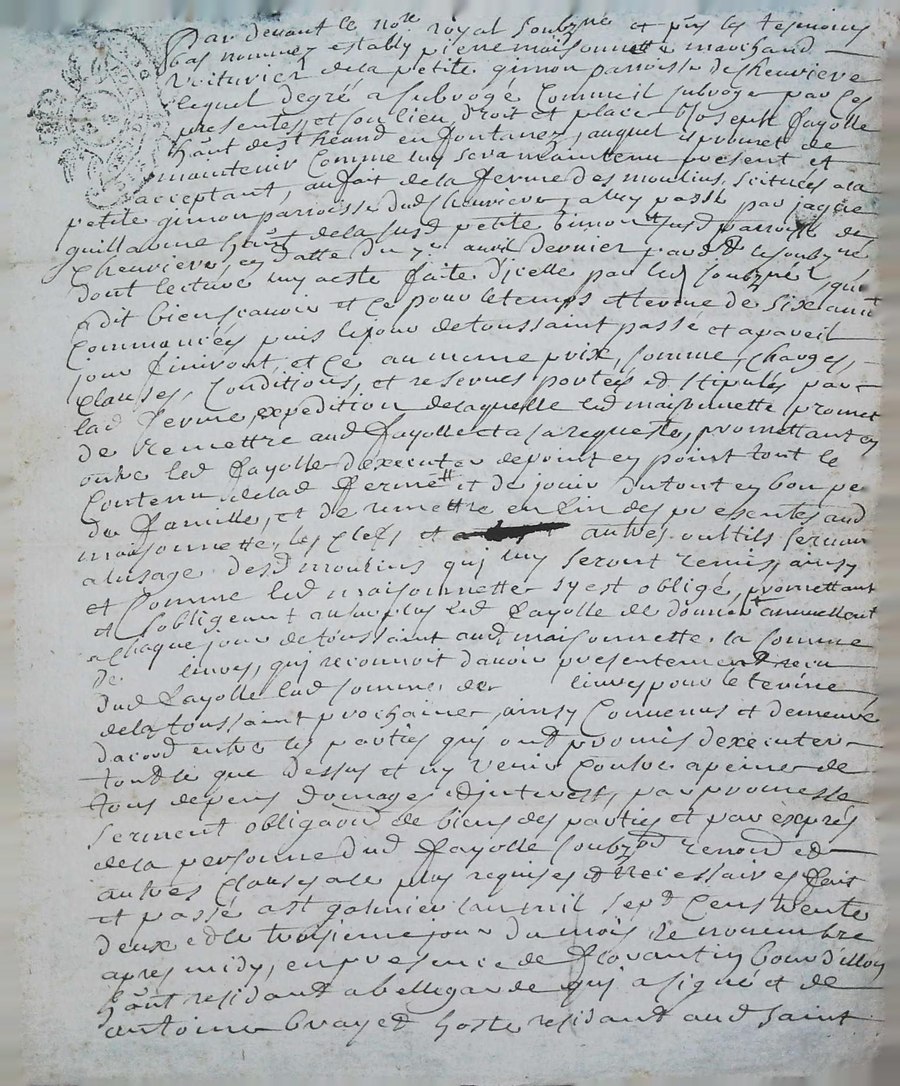 Par devant le nore royal soubzné et pñs les tesmoins
bas nommez estably pierre maisonnette marchand
voiturier de la petite gimon parroisse de cheuvieve
lequel degré a subrogé comme il subroge par ces
presentes, et son lieu, droit et place Joseph fayolle
hãnt de st heand en fontanez, auquel il promet de
maintenir comme luy sera maintenu present et
acceptant, au fait de la ferme des moulins scitues a la
petite gimon parroisse dud cheuvieve, a luy passé par jacque
guillaume hãnt de la susd petite gimon susd parroisse de
cheuvieve, en datte du 7e auril dernier pard le soubzné
dont lecture luy a este faite d'icelle par led soubzné qui
a dit bien scauoir et ce pour le temps et terme de six ans
commancés puis le jour de toussaint passé et a pareil
jour finiront, et ce au meme prix, somme, charges,
clauses, conditions, et reserues portées et stipulés par
lad ferme, expedition de laquelle led maisonnette promet
de remettre aud fayolle et a sa requeste, promettant en
outre led fayolle d'executer de point en point tout le
contenu de lad ferme et de jouir du tout en bon pe
du famille, et de remettre en fin des presentes aud
maisonnette, les clefs et autres outils seruan
a lusage desd moulins qui luy seront remis, ainsy
et comme led maisonnette sy est obligé, promettant
et sobligeant au surplus led fayolle de donner annuellemt
a chaque jour de toussaint aud maisonnette la somme
de livres, qui reconnoit d'auoir presentement receu
dud fayolle lad somme de livres pour le terme
de la toussaint prochaine, ainsy conuenus et demeuré
d'acord entre les parties qui ont promis d'executer
tout le que dessus et ny venir contre a peine de
tous depens domages et jnterests, par promesse
serment obligaõn de biens des parties et par exprés
de la personne dud fayolle soubz on renonõn et
autres clauses a le plus requises et necessaires fait
et passé a st galmier lan mil sept cens trente
deux et le troisieme jour du mois de nouembre
apres midy, en presence de florantin bourdillon
hãnt residant a bellegarde qui a signé et de
antoine brayet hoste residant aud saint